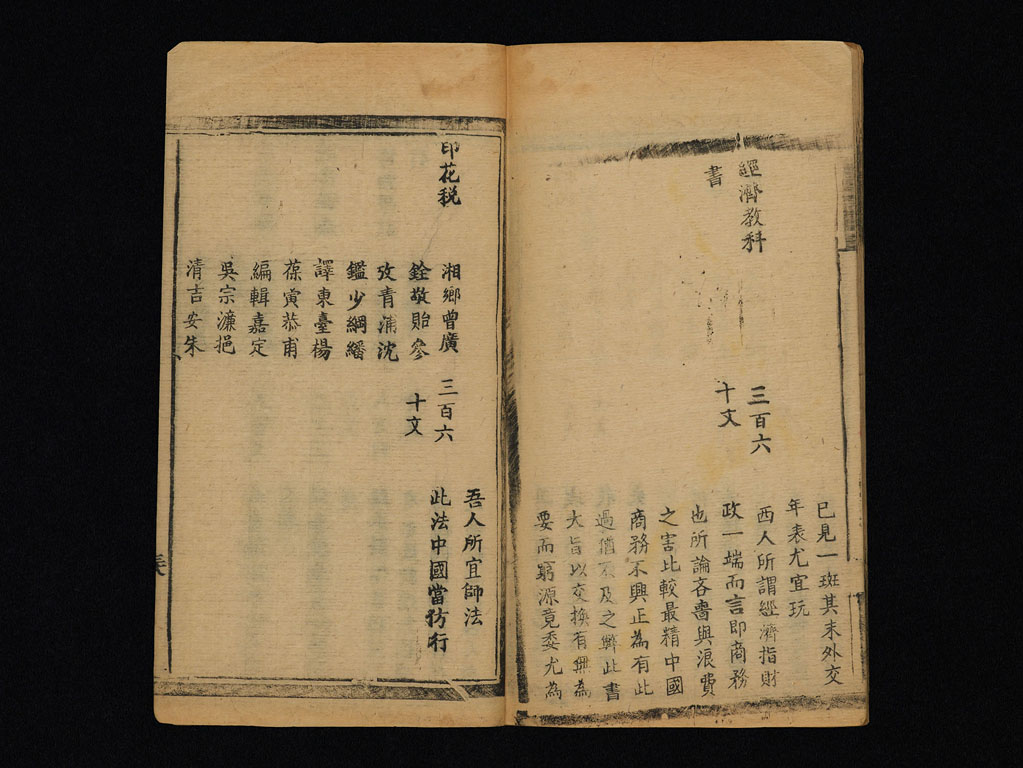 已見一斑其末外交
年表尤宜玩
經濟教科
書
三百六
十文
西人所謂經濟指財
政一端而言即商務
也所論吝嗇與浪費
之害比較最精中國
商務不興正為有此
過猶不及之弊此書
大旨以交換有無為
要而窮源竟委尤為
吾人所宜師法
印花税
湘鄉曾廣
銓敬貽參
攷青浦沈
鑑少綱繙
譯東臺楊
葆寅恭甫
編輯嘉定
吳宗濂挹
清吉安朱
三百六
十文
此法中國當仿行